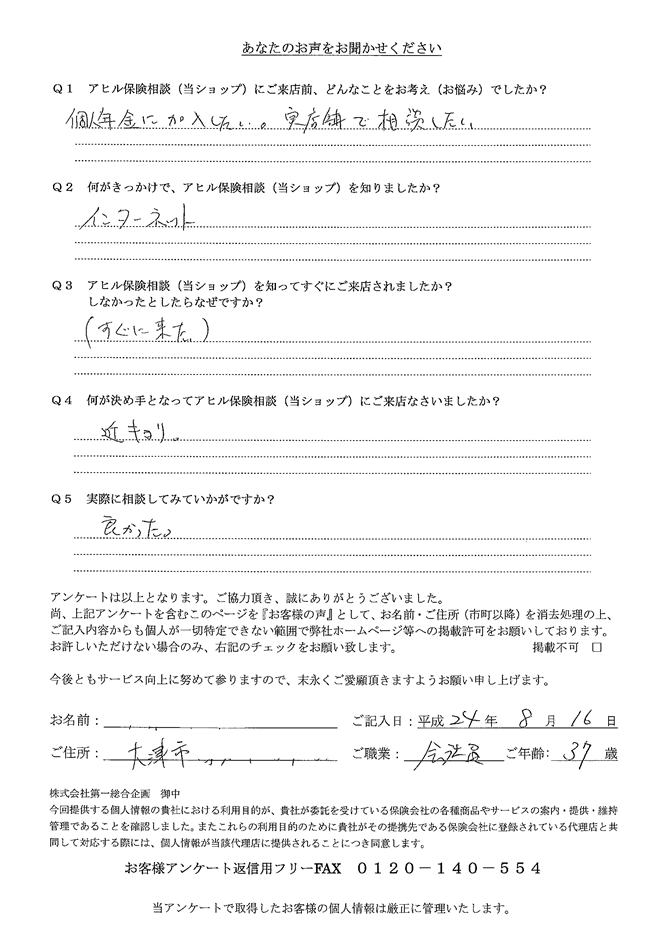 あなたのお声をお聞かせください
Q1 アヒル保険相談（当ショップ）にご来店前、どんなことをお考え（お悩み）でしたか？
個人年金に加入したい。実店舗で相談したい
Q2 何がきっかけで、アヒル保険相談（当ショップ）を知りましたか？
インターネット
Q3 アヒル保険相談（当ショップ）を知ってすぐにご来店されましたか？
しなかったとしたらなぜですか？
（すぐに来た。）
Q4 何が決め手となってアヒル保険相談（当ショップ）にご来店なさいましたか？
近キョリ。
Q5 実際に相談してみていかがですか？
良かった。
アンケートは以上となります。ご協力頂き、誠にありがとうございました。
尚、上記アンケートを含むこのページを『お客様の声』として、お名前・ご住所（市町以降）を消去処理の上、
ご記入内容からも個人が一切特定できない範囲で弊社ホームページ等への掲載許可をお願いしております。
お許しいただけない場合のみ、右記のチェックをお願い致します。 掲載不可 □
今後ともサービス向上に努めて参りますので、末永くご愛顧頂きますようお願い申し上げます。
お名前： ご記入日：平成 24 年 8 月 16 日
ご住所： 大津市 ご職業： 会社員 ご年齢： 37 歳
株式会社第一総合企画 御中
今回提供する個人情報の貴社における利用目的が、貴社が委託を受けている保険会社の各種商品やサービスの案内・提供・維持
管理であることを確認しました。またこれらの利用目的のために貴社がその提携先である保険会社に登録されている代理店と共
同して対応する際には、個人情報が当該代理店に提供されることにつき同意します。
お客様アンケート返信用フリーFAX 0120－140－554
当アンケートで取得したお客様の個人情報は厳正に管理いたします。